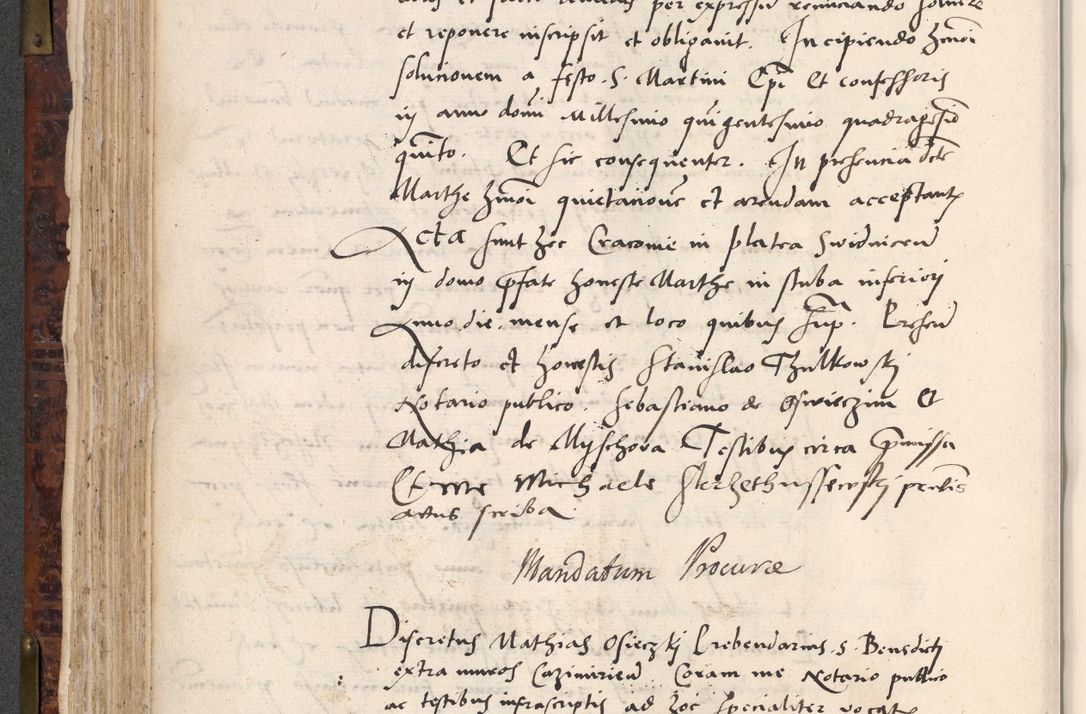 et reponere inscripsit et obligavit. Incipiendo hmoi
solucionem a festo. S. Martini Epi Et confessoris
in anno domi Millesimo quigentesimo quadragesio
quito. Et sic consequenter. In presencia dcte
Marthe hmoi quietacione et arendam acceptant
Acta sunt hec Cracovie in platea Swidnicen
in domo pfate honeste Marthe in stuba inferiori
Anno die. mense et loco quibus sup. Presen
discreto et honestis Stanislao Thulkowsky
Notario publico. Sebastiano de Oswieczim Et
Mathia de Myschova Testibus circa pmissa
Et me Michaele pntis
actus scriba
Mandatum Procurae
Discretus Mathias Osieczky Prebendarius. S. Benedicti
extra muros Cazimirien Coram me Notario publico
ac testibus infrascriptis ad hoc specialiter vocat